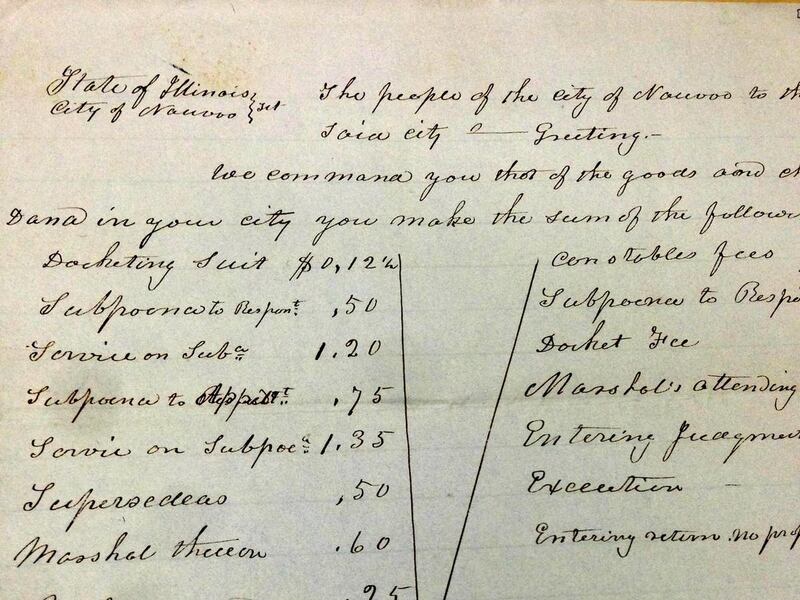 State of Illinois
City of Nauvoo } Sct
The people of the city of Nauvoo to the
Said city — Greeting.-
We command you that of the goods and ch
Dana in your city you make the sum of the follow
Docketing Suit $0,12½
Subpoena to Respont. ,50
Service on Suba 1.20
Subpoena to ,75
Servic on Subpoea 1.35
Supersedeas ,50
Marshal thereon .60
25
Constables fees
Subpoena to Respo
Docket Fee
Marshal's attending
Entering Judgmen
Execution -
Entering return no prop